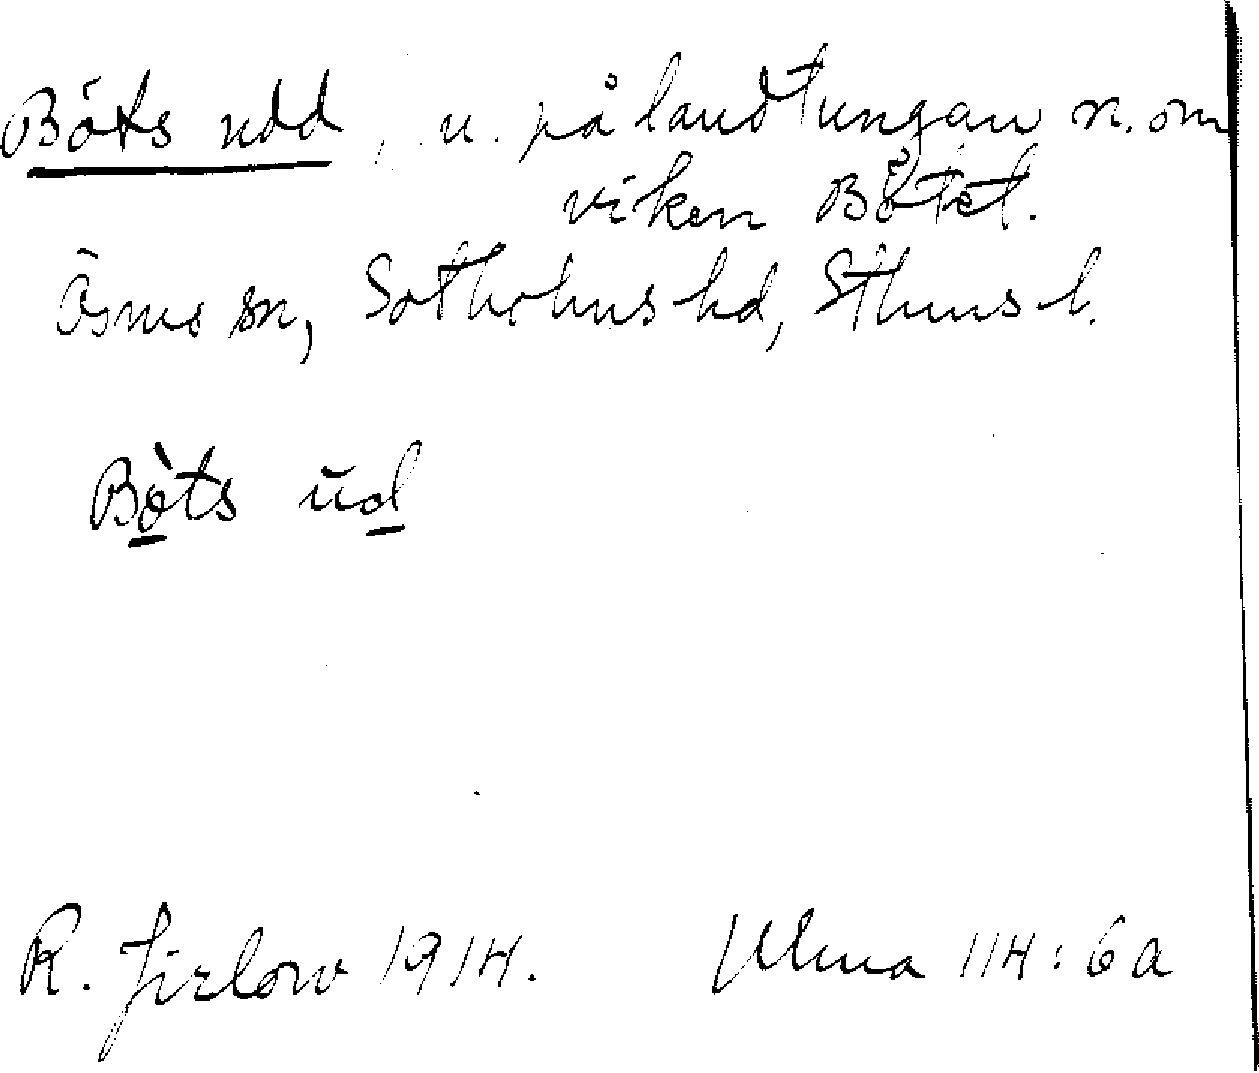 Böts udd, u. på landtungan n. om
viken Bötet.
Ösmo sn, Sotholms hd, Sthms l.
Bò̲ts ŭd̲
R. Jirlow 1914. Ulma 114:6a